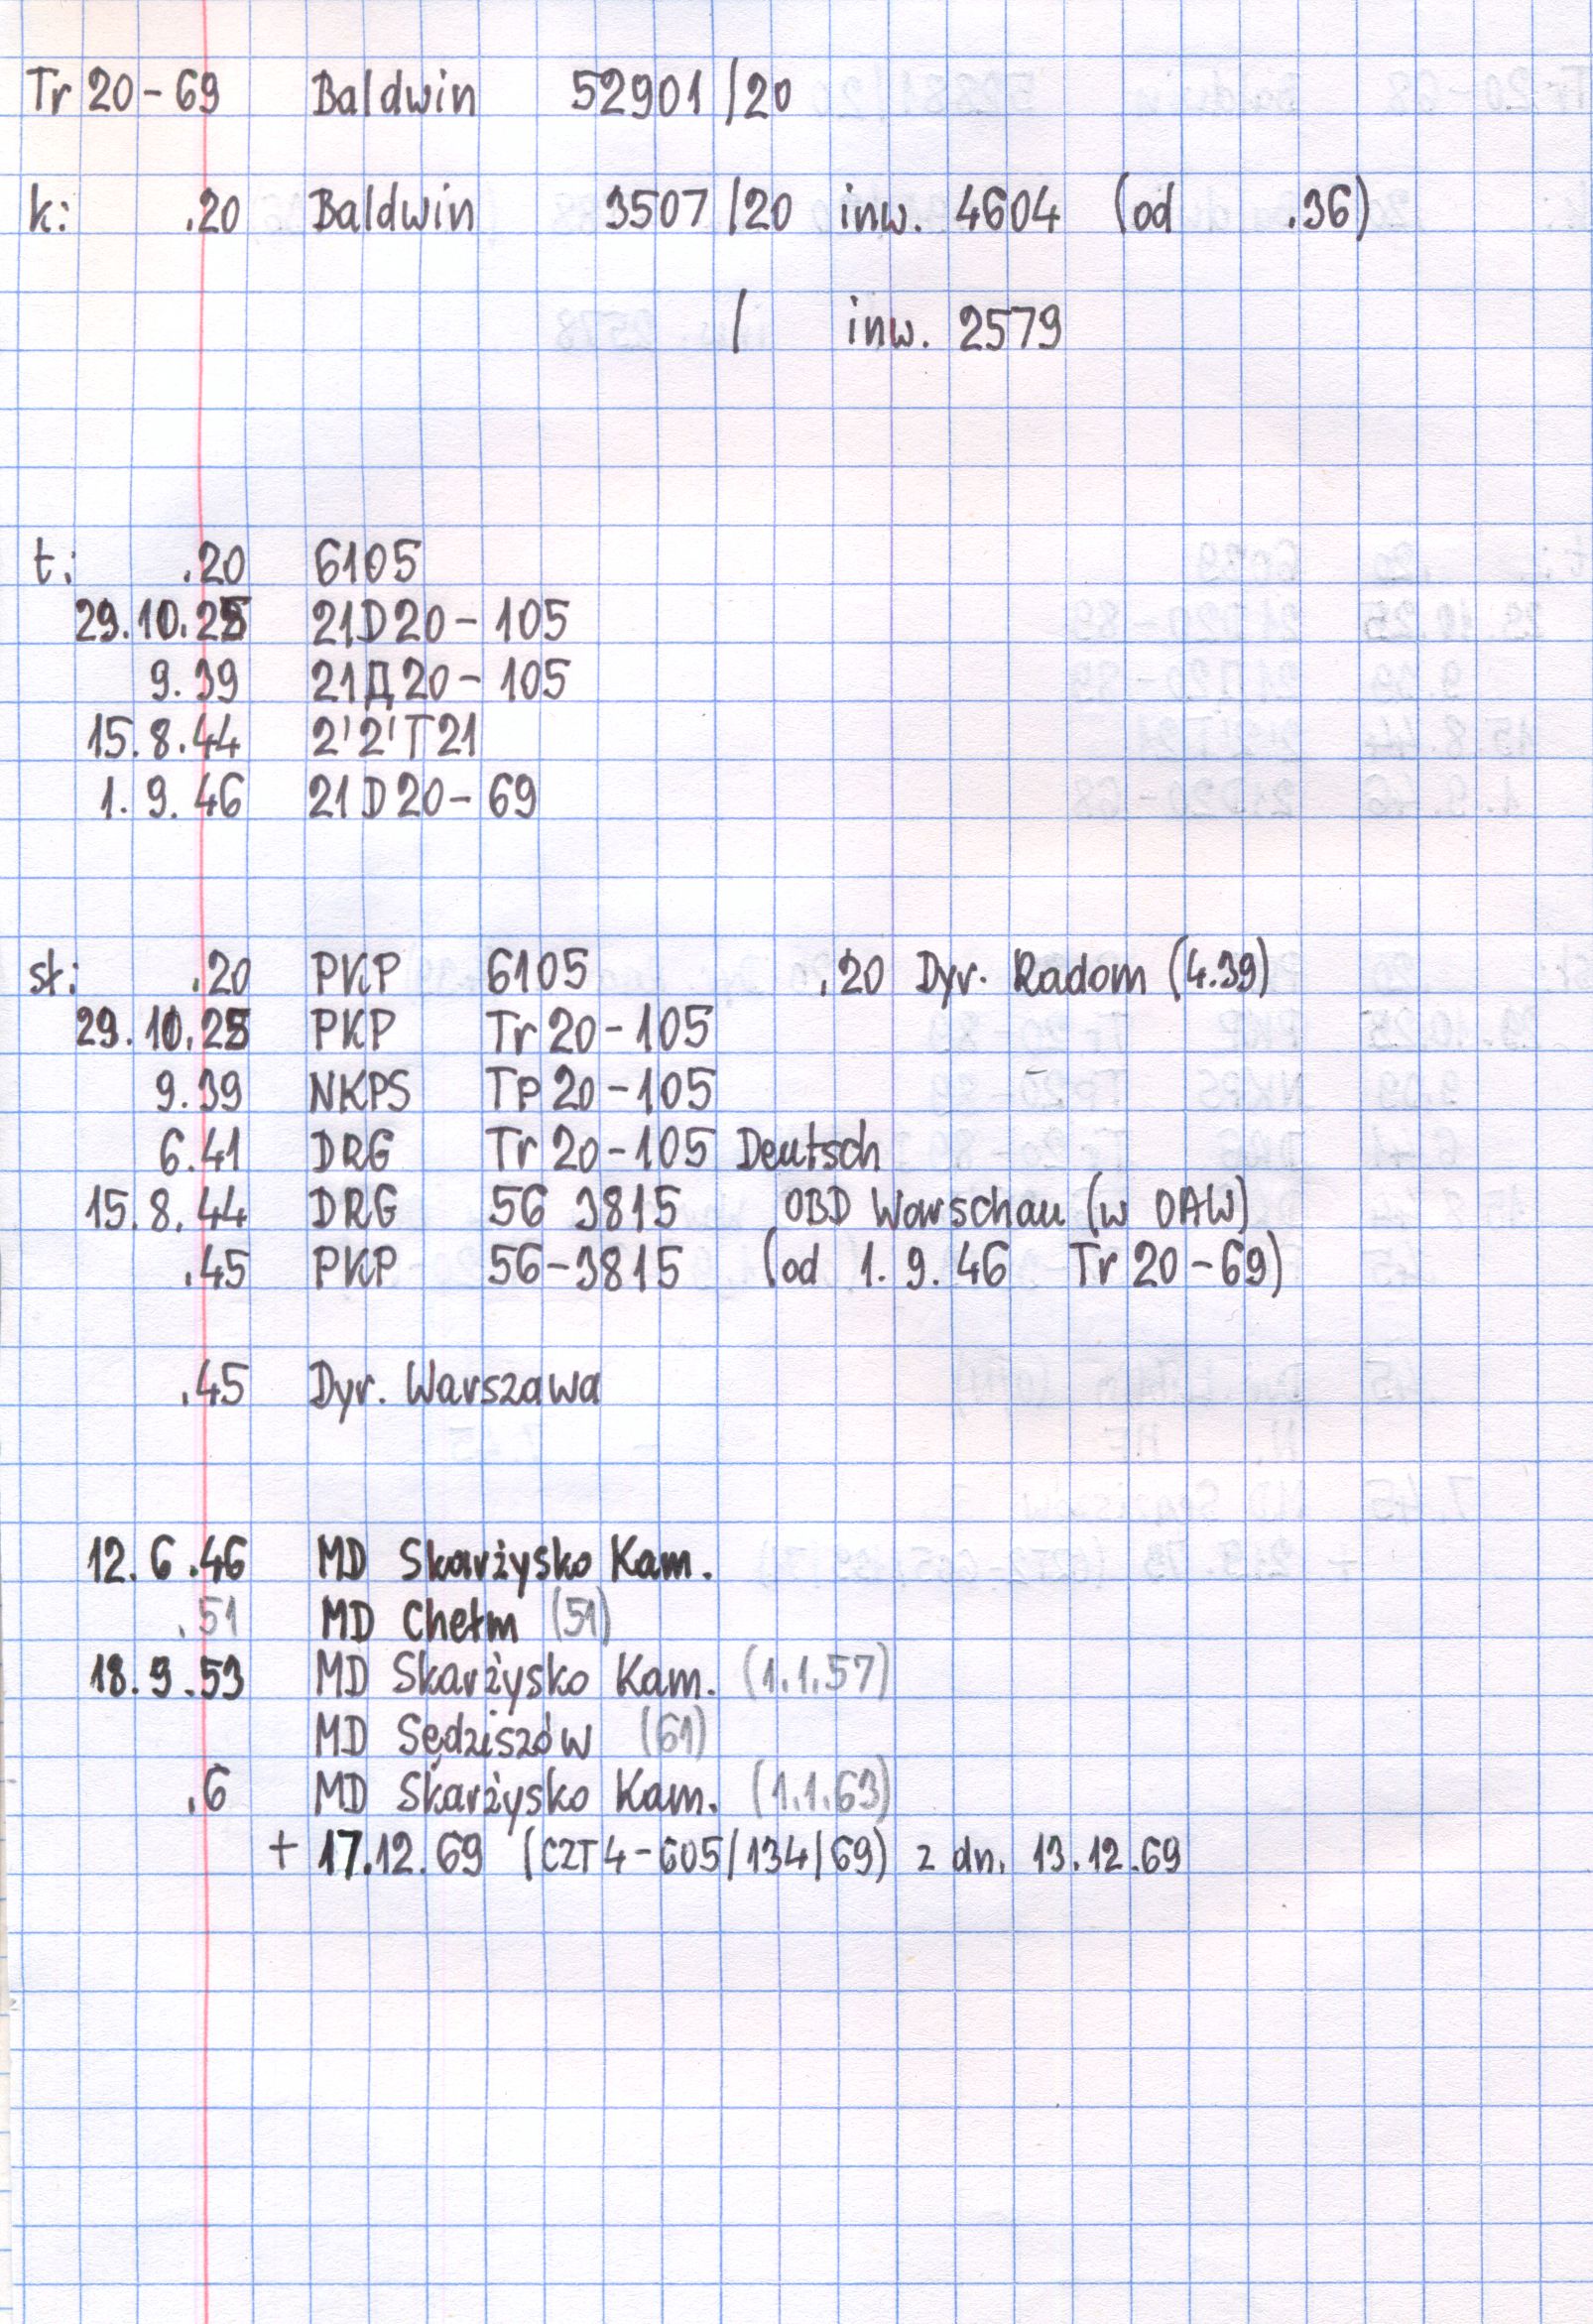 Tr 20-69 Baldwin 52901/20
k: .20 Baldwin 3507/20 inw. 4604 (od .36)
/ inw. 2579
t: .20 6105
29.10.25 21D20-105
9.39 21Д20-105
15.8.44 2'2'T21
1.9.46 21D20-69
st: .20 PKP 6105 .20 Dyr. Radom (4.39)
29.10.25 PKP Tr 20-105
9.39 NKPS Tp 20-105
6.41 DRG Tr 20-105 Deutsch
15.8.44 DRG 56 3815 OBD Warschau (w OAW)
.45 PKP 56-3815 (od 1.9.46 Tr 20-69)
.45 Dyr. Warszawa
12.6.46 MD Skarżysko Kam.
.51 MD Chełm (51)
18.9.53 MD Skarżysko Kam. (1.1.57)
MD Sędziszów (61)
.6 MD Skarżysko Kam. (1.1.63)
+ 17.12.69 (CZT4-605/134/69) z dn. 13.12.69